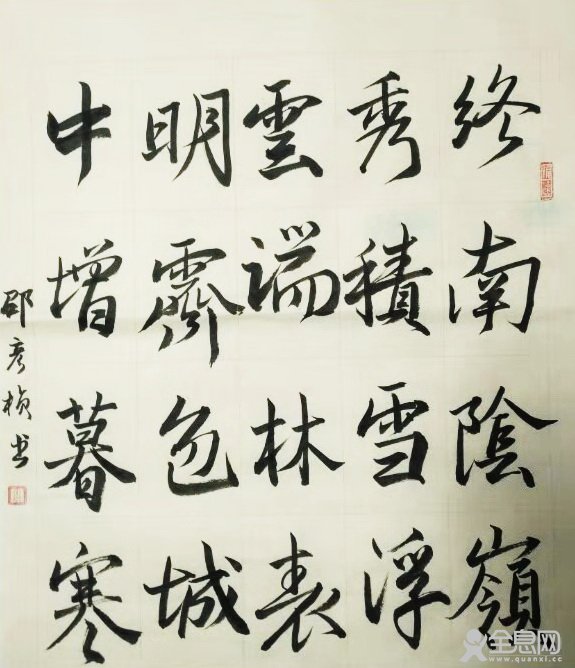 終南陰嶺
秀積雪浮
雲端林表
明霽色城
中增暮寒
邵彦桢书
全息网
www.quanxi.cc